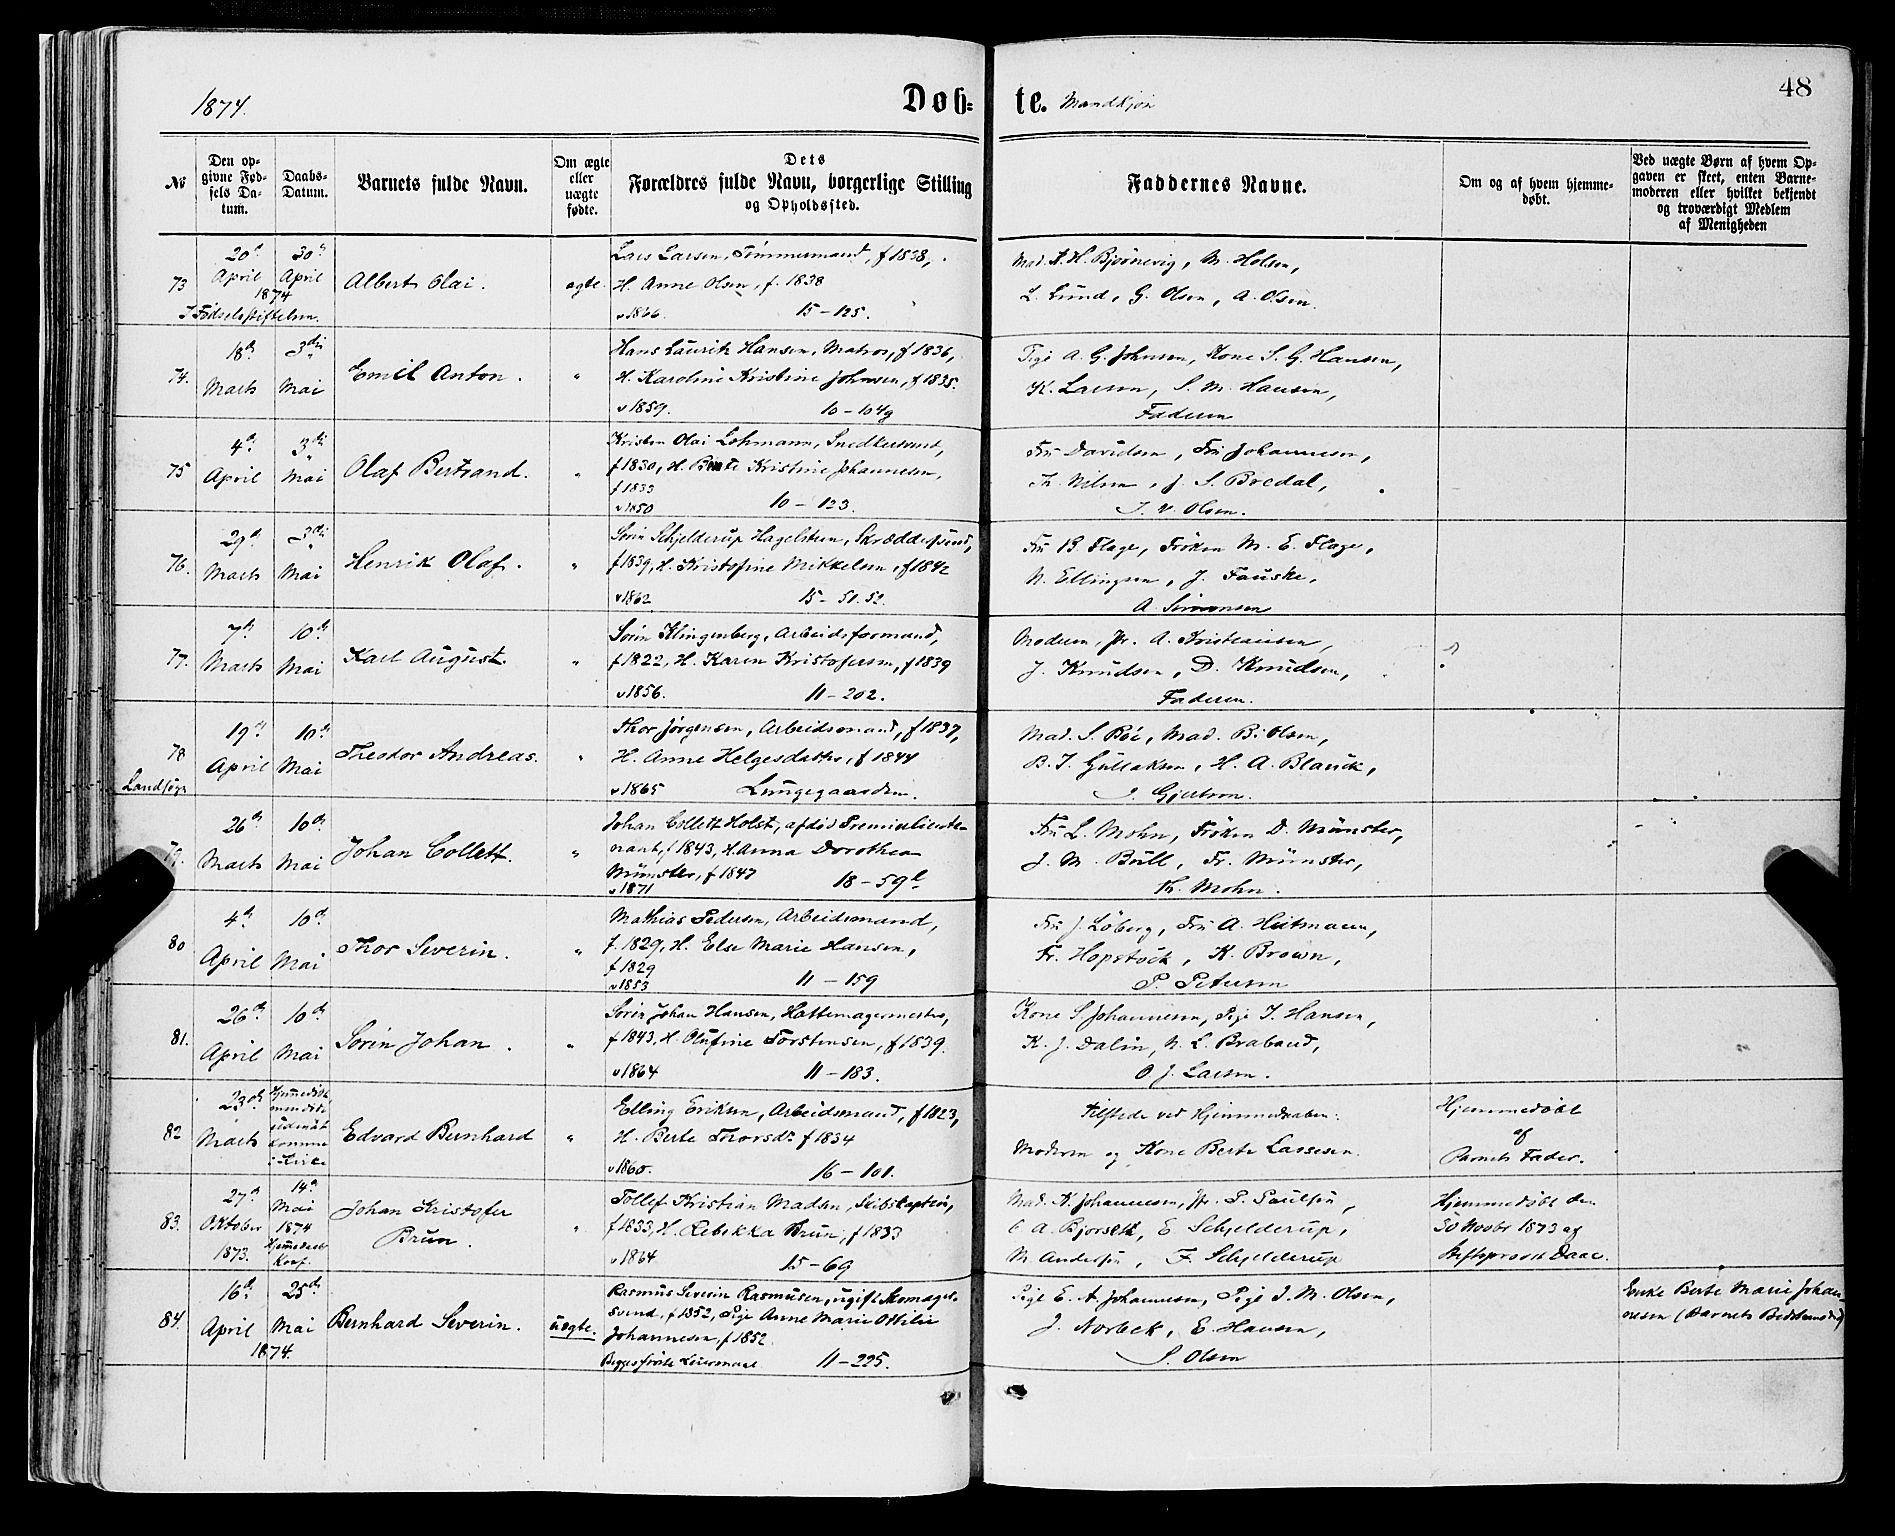 1874.
Døb-
te. Mandkjøn
48
No
Den op-
givne Fød-
sels Da-
tum.
Daabs-
Datum.
Barnets fulde Navn.
Om ægte
eller
uægte
fødte.
Dets
Forældres fulde Navn, borgerlige Stilling
og Opholdssted.
Faddernes Navne.
Om og af hvem hjemme-
døbt.
Ved uægte Børn af hvem Op-
gaven er skeet, enten Barne-
moderen eller hvilket bekjendt
og troværdigt Medlem
af Menigheden
73
20de April
30te April
1874
I Fødselsstiftelsen.
Albert Olai.
ægte.
Lars Larsen, Tømmermand, f 1838,
H. Anne Olsen, f. 1838
v 1866. 15-125.
Mad. A. H. Bjørnevig, M. Holsen,
L. Lund, G. Olsen, A. Olsen.
74.
18de Marts
3die Mai
Emil Anton.
"
Hans Laurits Hansen, Matros, f 1836,
H. Karoline Kristine Johnsen, f 1835.
v 1859. 10-104g
Pige A. G. Johnsen, Kone S. G. Hansen,
K. Larsen, S. M. Hansen,
Faderen
75
4de April
3die Mai
Olaf Bertrand.
"
Kristen Olai Lohmann, Snedkersvend,
f 1830, H. Bente Kristine Johannesen,
f 1833
v 1850 10-123.
Fru Davidsen, Fru Johannesen,
Th. Nilsen, J. S. Bredal,
J. V. Olsen.
76.
29de Marts
3die Mai
Henrik Olaf.
"
Sørin Schjelderup Hagelsteen, Skræddersvend,
f 1839, H. Kristofine Mikkelsen, f 1842
v 1862 15-51.52.
Fru B. Flage, Frøken M. E. Flage,
N. Ellingsen, J. Fauske,
A. Simonsen
77.
7de Marts
10de Mai
Karl August.
"
Sørin Klingenberg, Arbeidsformand,
f 1822, H. Karen Kristofersen, f 1839
v 1856. 11-202.
Moderen, Jfr. A. Kristiansen,
J. Knudsen, D. Knudsen,
Faderen.
78
Landsogn
19de April
10de Mai
Theodor Andreas.
"
Thor Jørgensen, Arbeidsmand, f 1837,
H. Anne Helgesdatter, f 1844
v 1865 Lungegaarden.
Mad. S. Bøe, Mad. B. Olsen,
B. T. Gullaksen, H. A. Blauck,
J. Gjertsen.
79.
26de Marts
10de Mai
Johan Collett.
"
Johan Collett Holst, afdød Premierlieute-
nant, f 1843, H. Anna Dorothea
Münster, f 1847
v 1871 18-59b
Fru L. Mohn, Frøken D. Münster,
J. M. Bull, Fr. Münster,
Th. Mohn.
80
4de April
10de Mai
Thor Severin.
"
Mathias Pedersen, Arbeidsmand,
f. 1829, H. Else Marie Hansen,
f 1829
v 1853 11-159
Fru J. Løberg, Fru A. Heitmann,
Fr. Hopstock, K. Brown,
P. Petersen
81.
26de April
10de Mai
Sørin Johan.
"
Sørin Johan Hansen, Hattemagermester,
f 1843, H. Olufine Torstensen, f 1839.
v 1864 11-183.
Kone S. Johannesen, Pige J. Hansen,
K. J. Dalin, N. L. Braband,
O. J. Larsen.
82
23de Marts
Hjemmedøbt
Edvard Bernhard
"
Elling Eriksen, Arbeidsmand, f 1823,
H. Berte Thorsdr f 1834
v 1860. 16-101.
Tilstede ved Hjemmedaaben:
Moderen og Kone Berte Lassesen.
Hjemmedøbt
af
Barnets Fader.
83.
27de Oktober 1873.
14de Mai 1874
Johan Kristofer
Brun.
"
Tollef Kristian Madsen, Skibskaptein,
f 1833, H. Rebekka Brun, f 1833
v 1864 15-69
Mad. K. Johannesen, Jfr. P. Paulsen,
C. A. Bjorseth, E. Schjelderup,
M. Andersen, F. Schjelderup
Hjemmedøbt den
30 Novbr 1873 af
Stiftsprovst Daae.
84.
16de April
25de Mai
1874.
Bernhard Severin.
uægte.
Rasmus Severin Rasmusen, ugift Skomager-
svend, f 1852, Pige Anne Marie Ottilie
Johannesen, f 1852.
Begges første Leiermaal 11-225.
Pige E. A. Johannesen, Pige J. M. Olsen,
J. Norbek, E. Hansen,
S. Olsen
Enke Berte Marie Johan-
nesen (Barnets Bedstemoder)